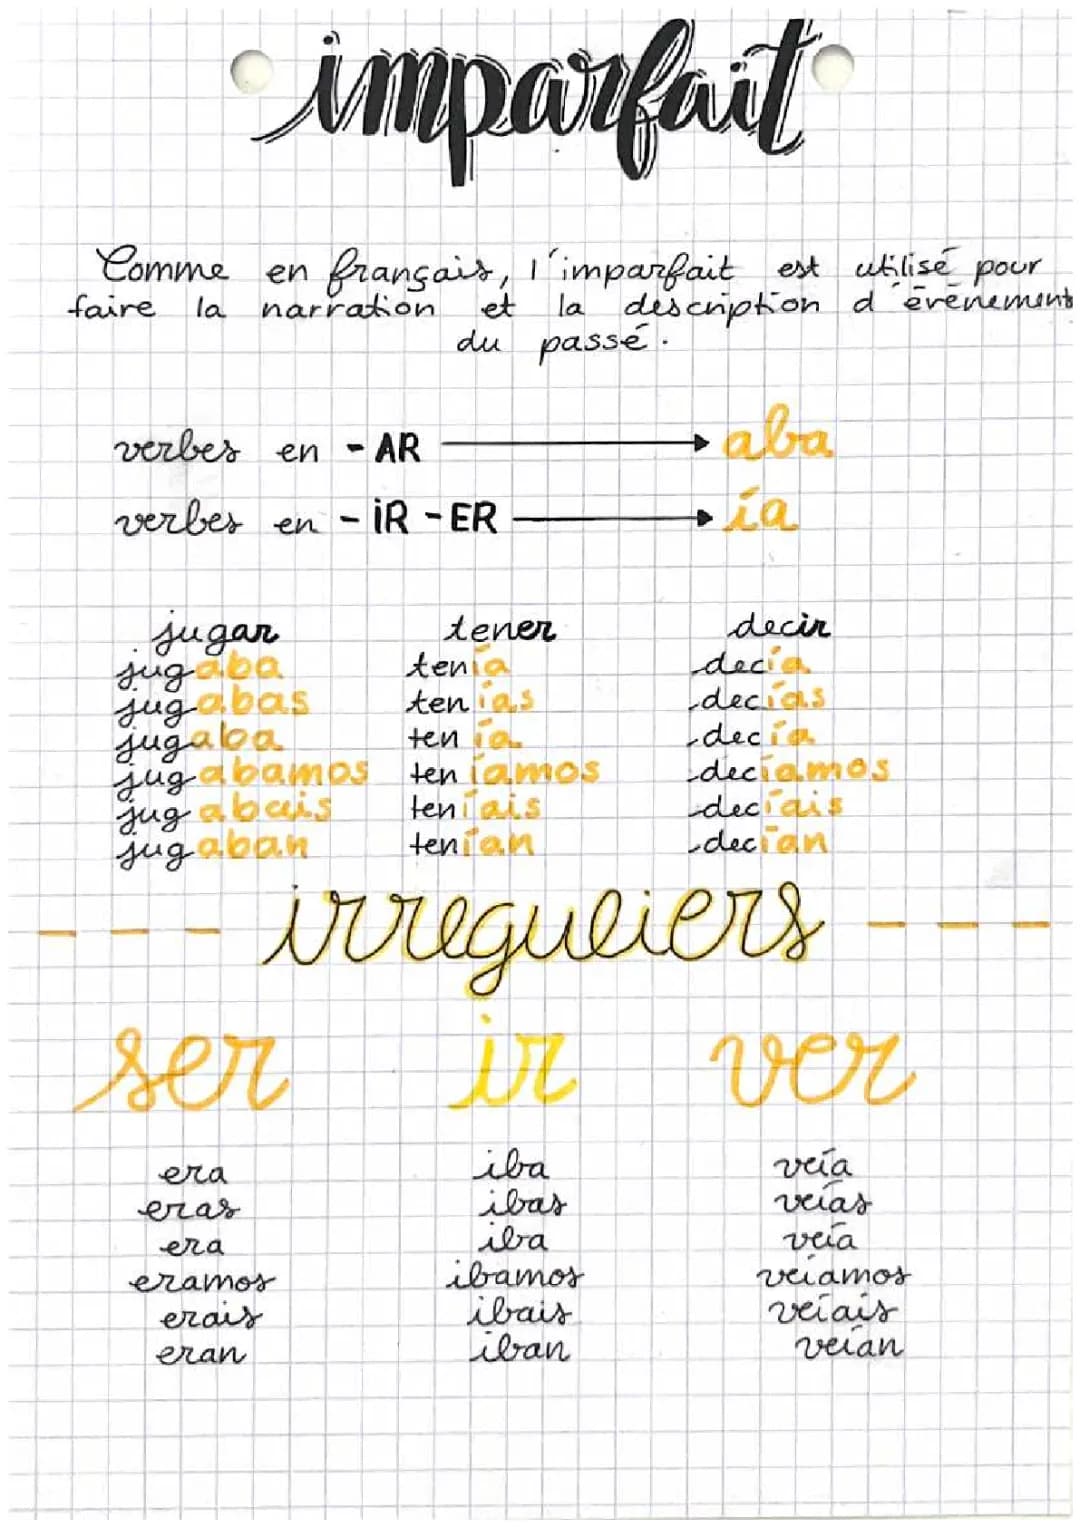 imparfait
Comme en français, l'imparfait est utilisé pour
faire la narration et la description d'évènement
du passé.
verbes en -AR → aba
verbes en -iR -ER → ía
jugar tener decir
jugaba tenía decía
jugabas tenías decías
jugaba tenía decía
jugabamos teníamos decíamos
jugabais teníais decíais
jugaban tenían decían
--- irreguliers ---
ser ir ver
era iba veía
eras ibas veías
era iba veía
eramos ibamos veíamos
erais ibais veíais
eran iban veían